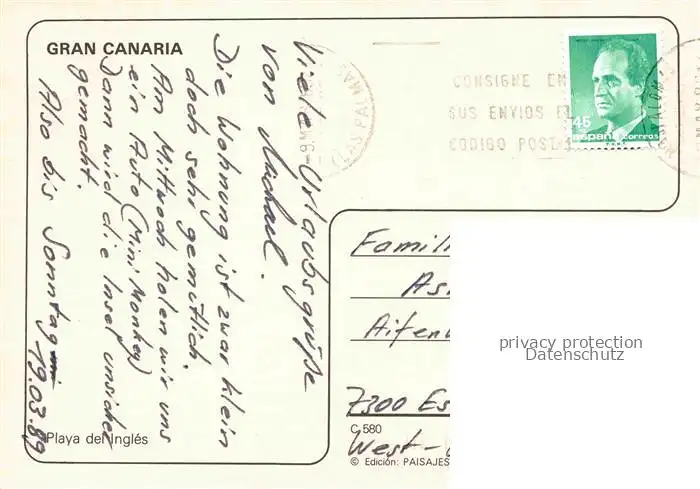 GRAN CANARIA
Viele Urlaubsgrüße
von Michael.
Die Wohnung ist zwar klein
doch sehr gemütlich.
Am Mittwoch holen wir uns
ein Auto (Mini Monkey)
Dann wird die Insel unsicher
gemacht.
Also bis Sonntag
19.03.89
Playa del Inglés
CONSIGNE EN
SUS ENVIOS EL
CODIGO POSTAL
LAS PALMAS
45
españa correos
Famili
As
Aifen
7300 Es
West-
C 580
© Edición: PAISAJES
privacy protection
Datenschutz